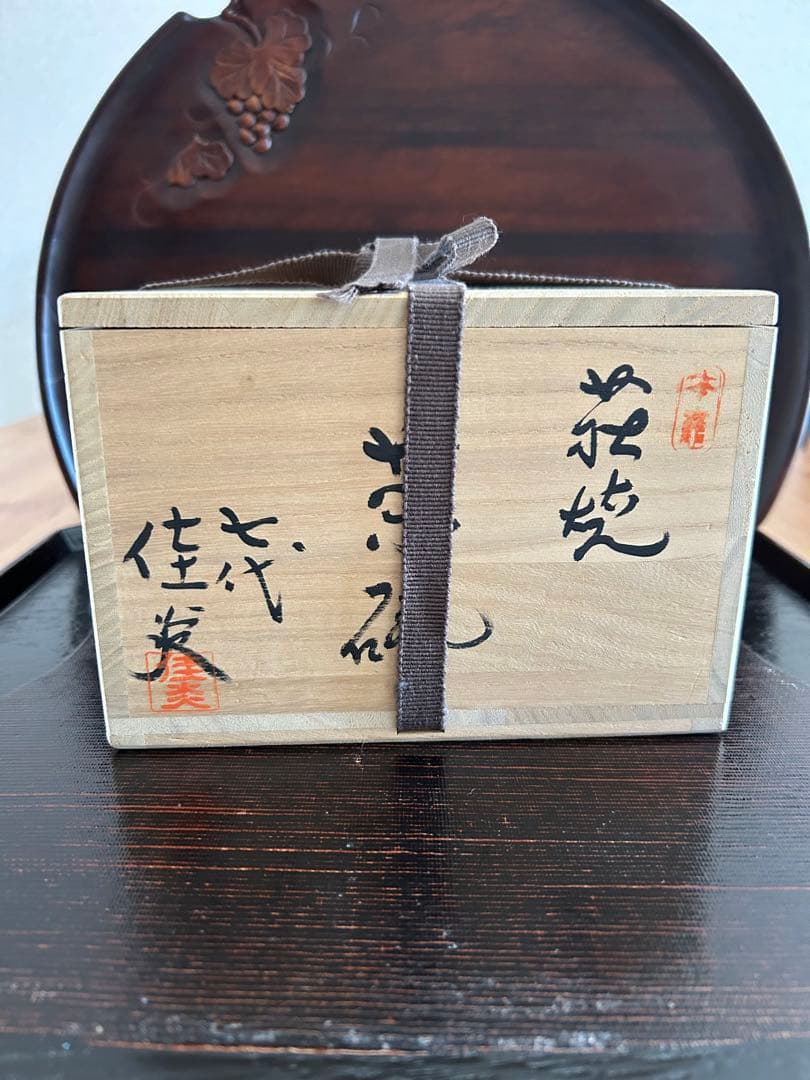 萩焼
茶碗
七代
佳炎
佳炎